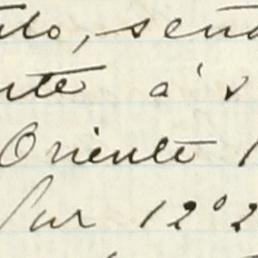 do, sen
nte á s
Oriente
Sur 12° 2